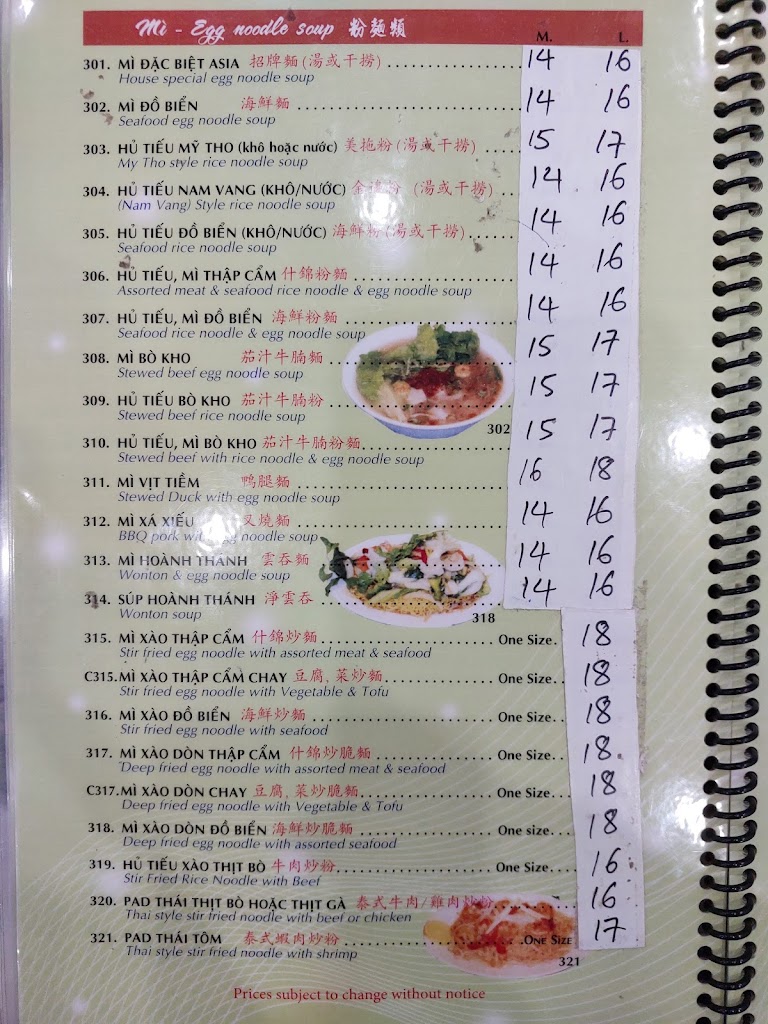 Mì - Egg noodle soup 粉麵類
M. L.
301. MÌ ĐẶC BIỆT ASIA 招牌麵 (湯或干撈) 14 16
House special egg noodle soup
302. MÌ ĐỒ BIỂN 海鮮麵 14 16
Seafood egg noodle soup
303. HỦ TIẾU MỸ THO (khô hoặc nước) 美拖粉 (湯或干撈) 15 17
My Tho style rice noodle soup
304. HỦ TIẾU NAM VANG (KHÔ/NƯỚC) 金邊粉 (湯或干撈) 14 16
(Nam Vang) Style rice noodle soup
305. HỦ TIẾU ĐỒ BIỂN (KHÔ/NƯỚC) 海鮮粉 (湯或干撈) 14 16
Seafood rice noodle soup
306. HỦ TIẾU, MÌ THẬP CẨM 什錦粉麵 14 16
Assorted meat & seafood rice noodle & egg noodle soup
307. HỦ TIẾU, MÌ ĐỒ BIỂN 海鮮粉麵 14 16
Seafood rice noodle & egg noodle soup
308. MÌ BÒ KHO 茄汁牛腩麵 15 17
Stewed beef egg noodle soup
309. HỦ TIẾU BÒ KHO 茄汁牛腩粉 15 17
Stewed beef rice noodle soup
302
310. HỦ TIẾU, MÌ BÒ KHO 茄汁牛腩粉麵 15 17
Stewed beef with rice noodle & egg noodle soup
311. MÌ VỊT TIỀM 鴨腿麵 16 18
Stewed Duck with egg noodle soup
312. MÌ XÁ XIẾU 叉燒麵 14 16
BBQ pork with egg noodle soup
313. MÌ HOÀNH THÁNH 雲吞麵 14 16
Wonton & egg noodle soup
314. SÚP HOÀNH THÁNH 淨雲吞 14 16
Wonton soup
318
315. MÌ XÀO THẬP CẨM 什錦炒麵 One Size. 18
Stir fried egg noodle with assorted meat & seafood
C315. MÌ XÀO THẬP CẨM CHAY 豆腐, 菜炒麵 One Size. 18
Stir fried egg noodle with Vegetable & Tofu
316. MÌ XÀO ĐỒ BIỂN 海鮮炒麵 One Size. 18
Stir fried egg noodle with seafood
317. MÌ XÀO DÒN THẬP CẨM 什錦炒脆麵 One Size. 18.
Deep fried egg noodle with assorted meat & seafood
C317. MÌ XÀO DÒN CHAY 豆腐, 菜炒脆麵 One Size. 18
Deep fried egg noodle with Vegetable & Tofu
318. MÌ XÀO DÒN ĐỒ BIỂN 海鮮炒脆麵 One size. 18
Deep fried egg noodle with assorted seafood
319. HỦ TIẾU XÀO THỊT BÒ 牛肉炒粉 One Size. 16
Stir Fried Rice Noodle with Beef
320. PAD THÁI THỊT BÒ HOẶC THỊT GÀ 泰式牛肉/雞肉炒粉 16
Thai style stir fried noodle with beef or chicken
321. PAD THÁI TÔM 泰式蝦肉炒粉 ONE SIZE 17
Thai style stir fried noodle with shrimp
321
Prices subject to change without notice